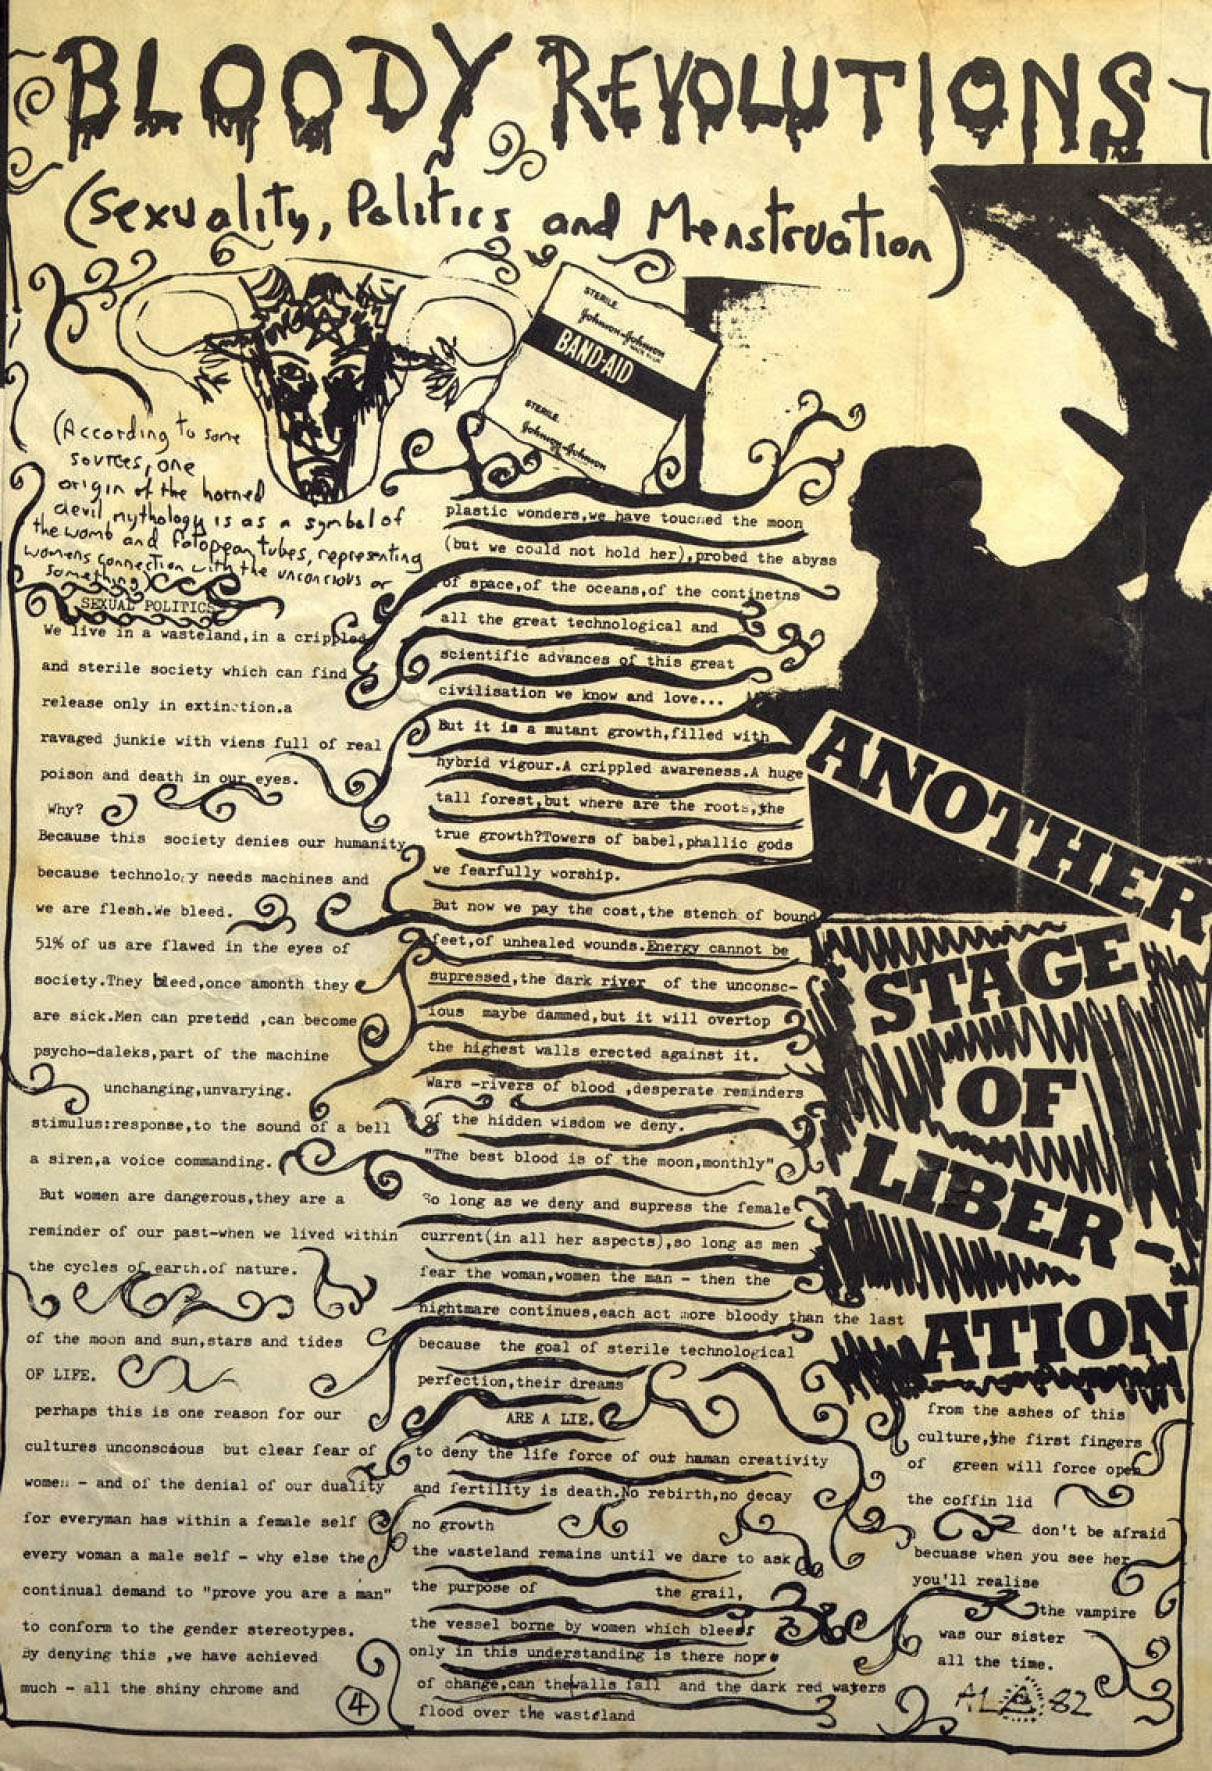 BLOODY REVOLUTIONS
(Sexuality, Politics and Menstruation)
STERILE
Johnson & Johnson
BAND-AID
STERILE
Johnson & Johnson
(According to some
sources, one
origin of the horned
devil mythology is as a symbol of
the womb and falopean tubes, representing
womens connection with the unconcious or
something)
SEXUAL POLITICS
We live in a wasteland,in a crippled
and sterile society which can find
release only in extinction.a
ravaged junkie with viens full of real
poison and death in our eyes.
Why?
Because this society denies our humanity
because technology needs machines and
we are flesh.We bleed.
51% of us are flawed in the eyes of
society.They bleed,once amonth they
are sick.Men can pretend ,can become
psycho-daleks,part of the machine
unchanging,unvarying.
stimulus:response,to the sound of a bell
a siren,a voice commanding.
But women are dangerous,they are a
reminder of our past-when we lived within
the cycles of earth.of nature.
of the moon and sun,stars and tides
OF LIFE.
perhaps this is one reason for our
cultures unconscious but clear fear of
women - and of the denial of our duality
for everyman has within a female self
every woman a male self - why else the
continual demand to "prove you are a man"
to conform to the gender stereotypes.
By denying this ,we have achieved
much - all the shiny chrome and
4
plastic wonders,we have touched the moon
(but we could not hold her),probed the abyss
of space,of the oceans,of the continetns
all the great technological and
scientific advances of this great
civilisation we know and love...
But it is a mutant growth,filled with
hybrid vigour.A crippled awareness.A huge
tall forest,but where are the roots,the
true growth?Towers of babel,phallic gods
we fearfully worship.
But now we pay the cost,the stench of bound
feet,of unhealed wounds.Energy cannot be
supressed,the dark river of the unconsc-
ious maybe dammed,but it will overtop
the highest walls erected against it.
Wars -rivers of blood ,desperate reminders
of the hidden wisdom we deny.
"The best blood is of the moon,monthly"
So long as we deny and supress the female
current(in all her aspects),so long as men
fear the woman,women the man - then the
nightmare continues,each act more bloody than the last
because the goal of sterile technological
perfection,their dreams
ARE A LIE.
to deny the life force of our human creativity
and fertility is death.No rebirth,no decay
no growth
the wasteland remains until we dare to ask
the purpose of the grail,
the vessel borne by women which bleeds
only in this understanding is there hope
of change,can the walls fall and the dark red waters
flood over the wasteland
ANOTHER
STAGE
OF
LIBER-
ATION
from the ashes of this
culture,the first fingers
of green will force open
the coffin lid
don't be afraid
becuase when you see her
you'll realise
the vampire
was our sister
all the time.
AL 82